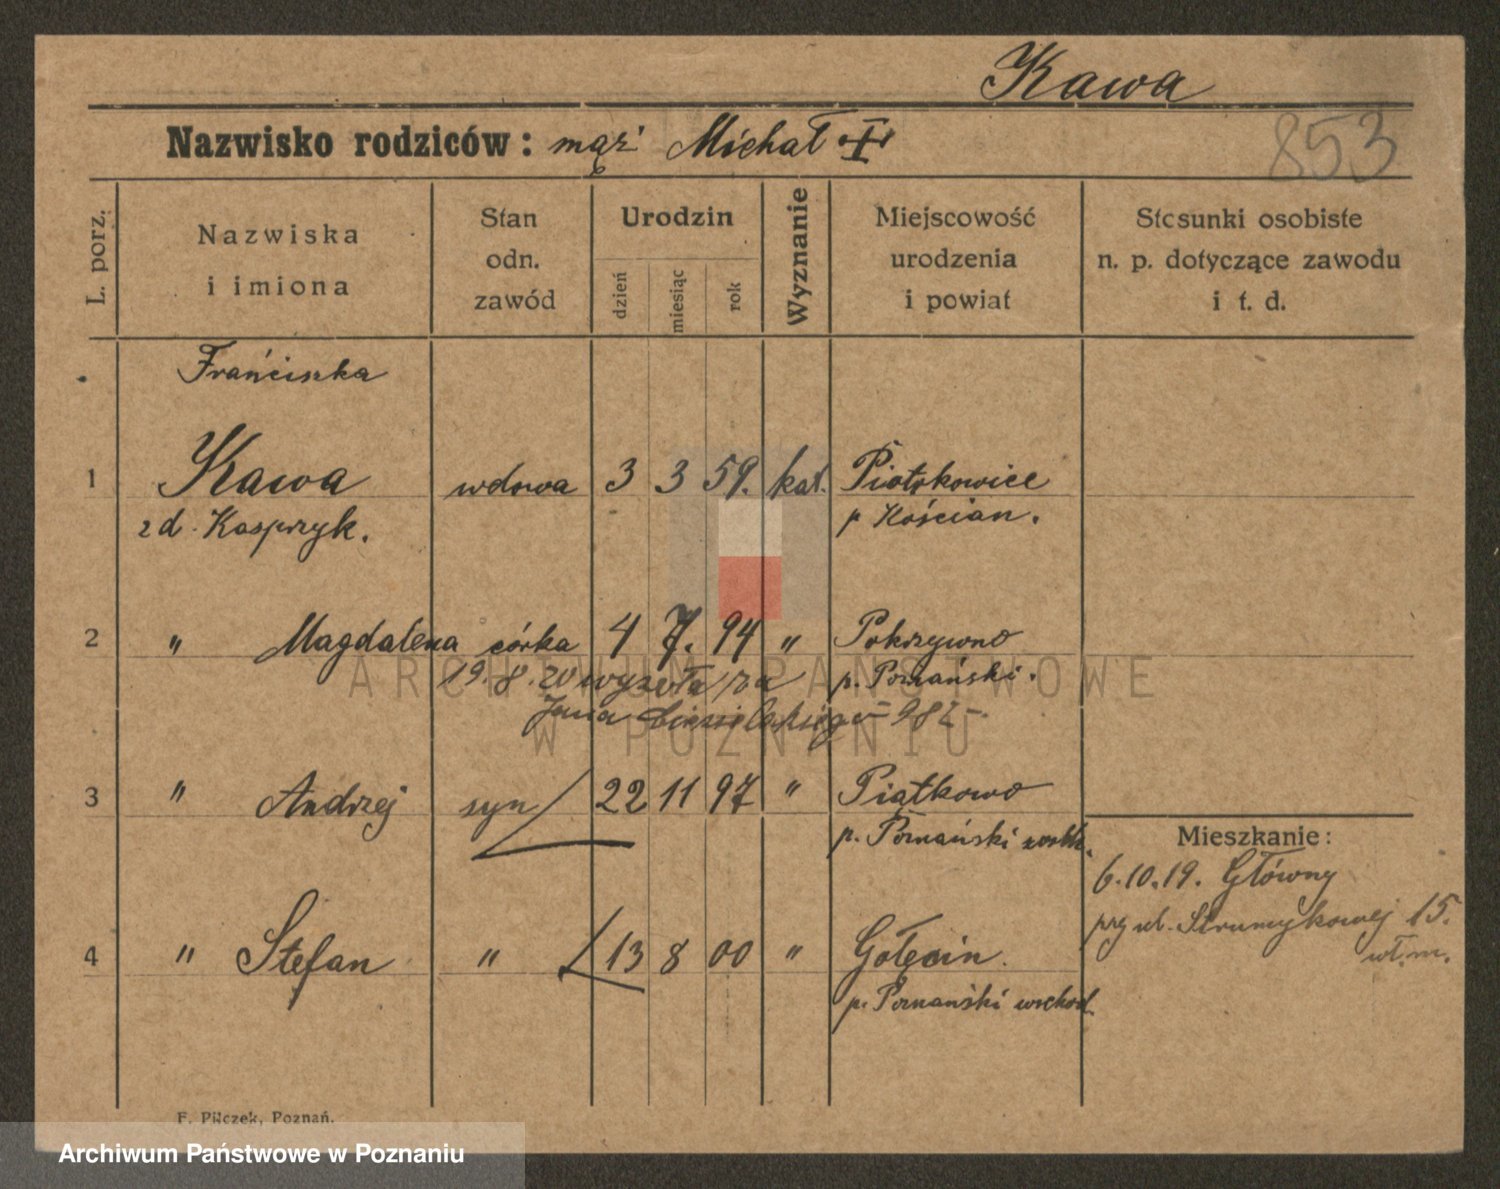 Kawa
Nazwisko rodziców: mąż Michał
853
L. porz.
Nazwiska i imiona
Stan odn. zawód
Urodzin
dzień
miesiąc
rok
Wyznanie
Miejscowość urodzenia i powiat
Stosunki osobiste n. p. dotyczące zawodu i t. d.
Franciszka
1 Kawa wdowa 3 3 59. kat. Piotrkowice
zd. Kasprzyk. p Kościan.
2 " Magdalena córka 4 7. 94 " Pokrzywno
19.8.20 wyszła za p. Poznański.
Jana 982
3 " Andrzej syn 22 11 97 " Piątkowo
p. Poznański
Mieszkanie:
6.10.19. Główny
ul. Strumykowej 15.
wł.m.
4 " Stefan " 13 8 00 " Golęcin.
p. Poznański wschod.
F. Pilczek, Poznań.
ARCHIWUM PAŃSTWOWE
W POZNANIU
Archiwum Państwowe w Poznaniu